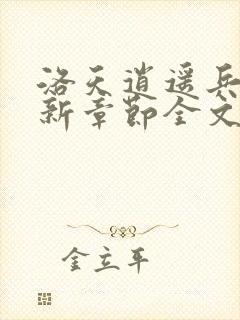 洛天逍遥兵
新章节全文
金立平